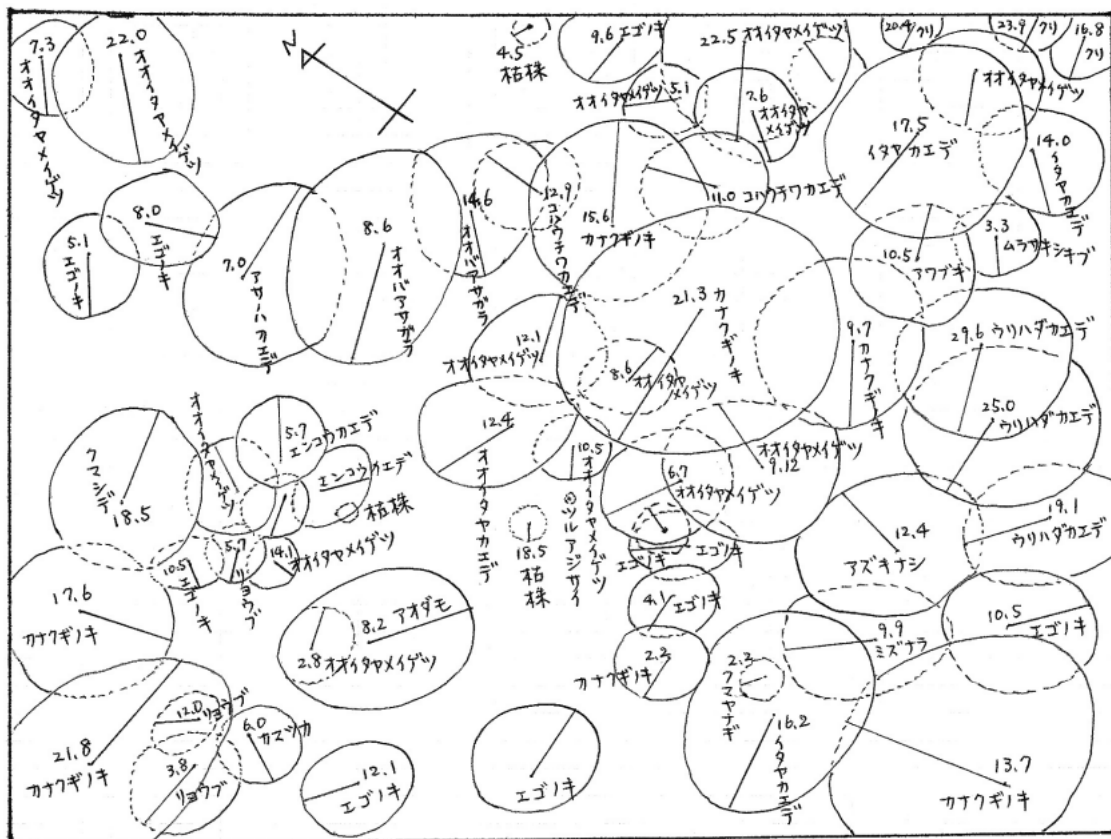 7.3
オオイタヤメイゲツ
22.0
オオイタヤメイゲツ
N
4.5
枯株
9.6 エゴノキ
22.5 オオイタヤメイゲツ
20.4 クリ
23.9 クリ
16.8
クリ
オオイタヤメイゲツ 5.1
7.6
オオイタヤ
メイゲツ
17.5
イタヤカエデ
オオイタヤメイゲツ
14.0
イタヤカエデ
8.0
エゴノキ
5.1
エゴノキ
7.0
アサノハカエデ
8.6
オオバアサガラ
14.6
オオバアサガラ
12.9
コハウチワカエデ
15.6
カナクギノキ
11.0 コハウチワカエデ
10.5
アワブキ
3.3
ムラサキシキブ
12.1
オオイタヤメイゲツ
21.3
カナクギノキ
8.6
オオイタヤ
メイゲツ
9.7
カナクギノキ
29.6 ウリハダカエデ
25.0
ウリハダカエデ
クマシデ
18.5
オオイタヤメイゲツ
5.7
エンコウカエデ
エンコウカエデ
枯株
12.4
オオイタヤカエデ
10.5
オオイタヤメイゲツ
ツルアジサイ
18.5
枯株
6.7
オオイタヤメイゲツ
オオイタヤメイゲツ
9.12
エゴノキ
エゴノキ
12.4
アズキナシ
19.1
ウリハダカエデ
10.5
エゴノキ
5.7
リョウブ
14.1
オオイタヤメイゲツ
17.6
カナクギノキ
8.2 アオダモ
2.8 オオイタヤメイゲツ
4.1 エゴノキ
2.2
カナクギノキ
9.9
ミズナラ
10.5
エゴノキ
2.3
クマヤナギ
16.2
イタヤカエデ
12.0 リョウブ
21.8
カナクギノキ
3.8
リョウブ
6.0
カマツカ
12.1
エゴノキ
エゴノキ
13.7
カナクギノキ